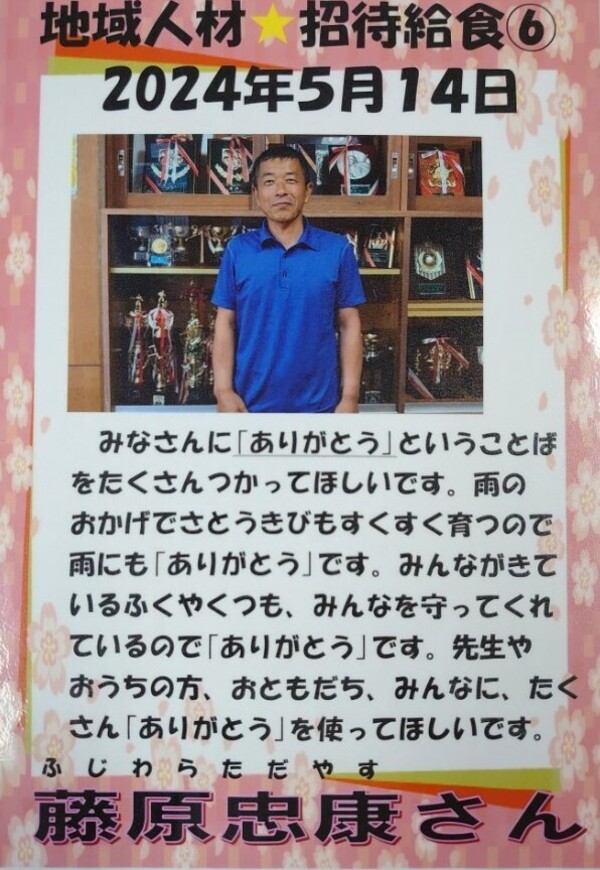 地域人材★招待給食⑥
2024年5月14日
みなさんに「ありがとう」ということば
をたくさんつかってほしいです。雨の
おかげでさとうきびもすくすく育つので
雨にも「ありがとう」です。みんながきて
いるふくやくつも、みんなを守ってくれ
ているので「ありがとう」です。先生や
おうちの方、おともだち、みんなに、たく
さん「ありがとう」を使ってほしいです。
ふじわらただやす
藤原忠康さん